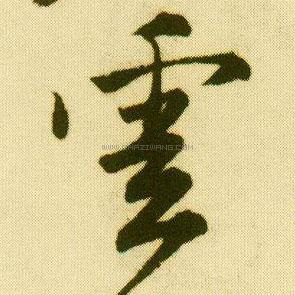 雲
WWW.CHAZIWANG.COM